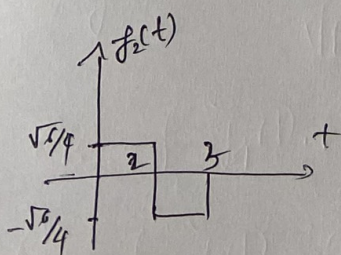 f₂(t)
√6/4
2
3
t
-√6/4